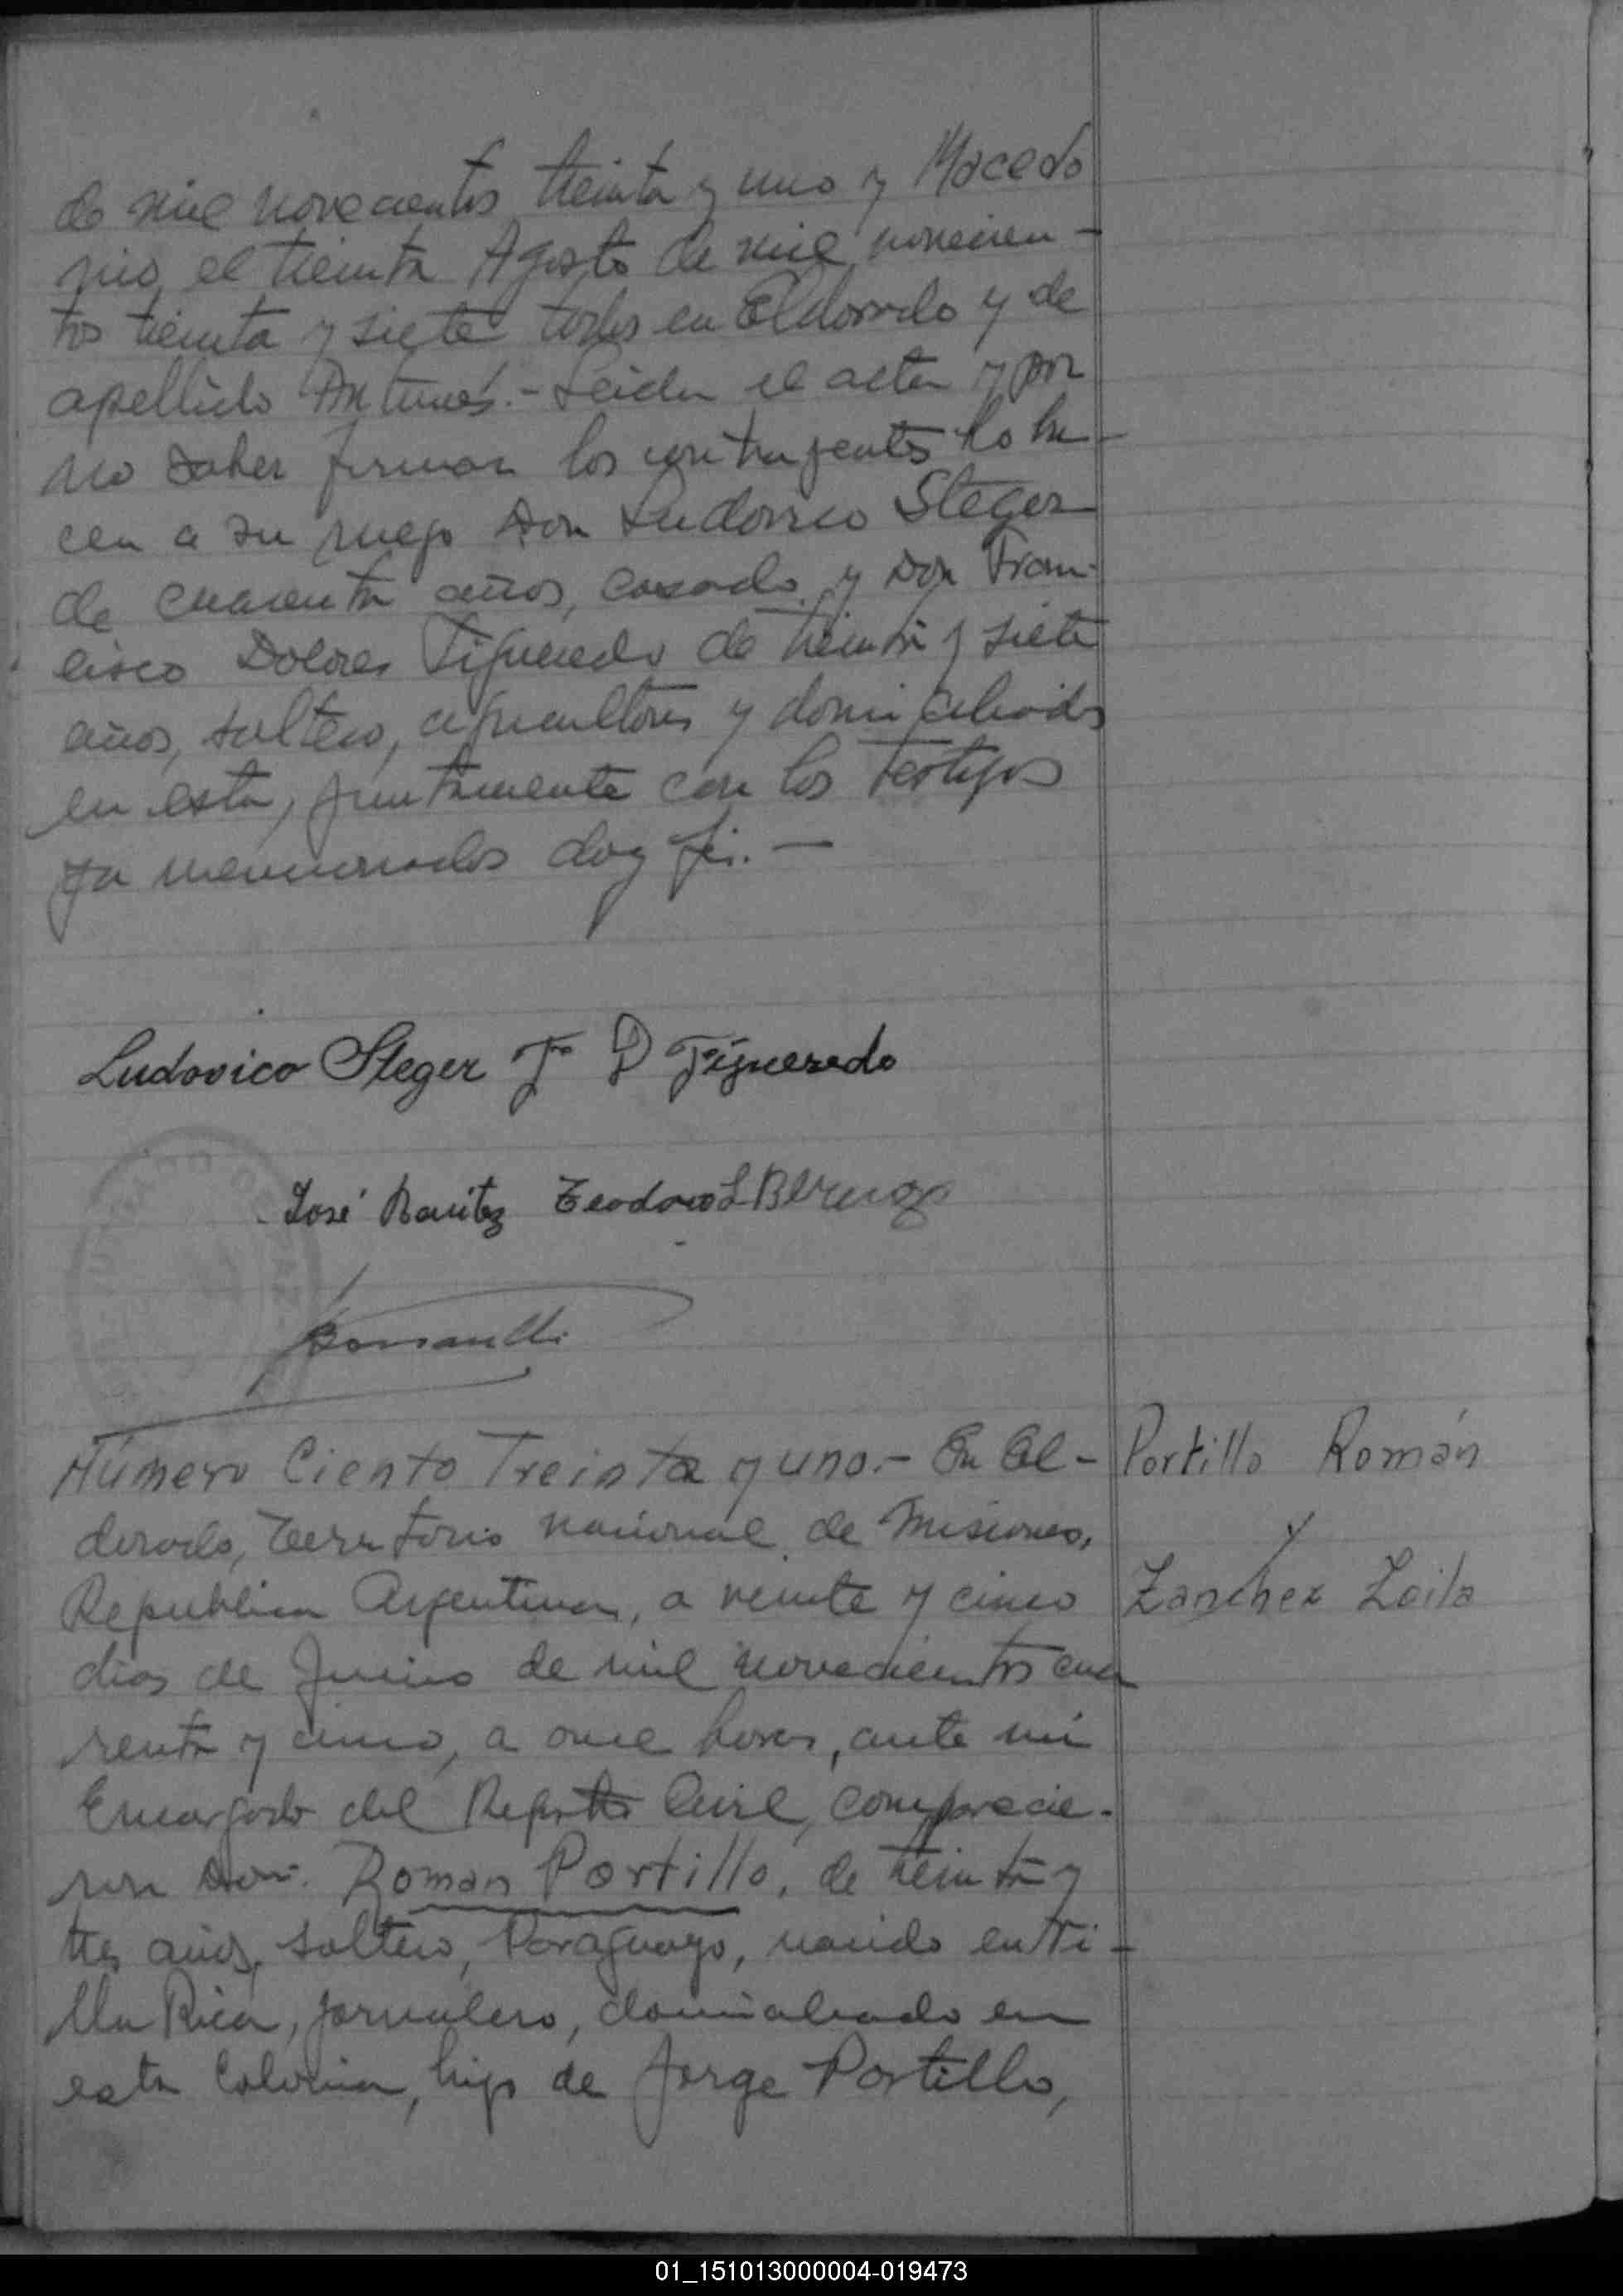 de mil novecientos treinta y uno y Macedo
nio, el treinta Agosto de mil novecien-
tos treinta y siete todos en Eldorado y de
apellido Antunes.- Leida el acta y por
no saber firmar los contrayentes lo ha-
cen a su ruego Don Ludovico Steger
de cuarenta años, casado y Don Fran-
cisco Dolores Figueredo de treinta y siete
años, soltero, agricultores y domiciliados
en esta, juntamente con los testigos
ya mencionados doy fé.-
Ludovico Steger F D Figueredo
José Benitez Teodoro L
Número Ciento Treinta y uno.- En El-
dorado, Territorio nacional de Misiones,
Republica Argentina, a veinte y cinco
dias de Junio de mil novecientos cua
renta y cinco, a once horas, ante mi
Encargado del Registro Civil, comparecie-
ron Don. Roman Portillo, de treinta y
tres años, soltero, Paraguayo, nacido en Vi-
lla Rica, jornalero, domiciliado en
esta Colonia, hijo de Jorge Portillo,
Portillo Román
y
Zanchez Zoila
01_151013000004-019473